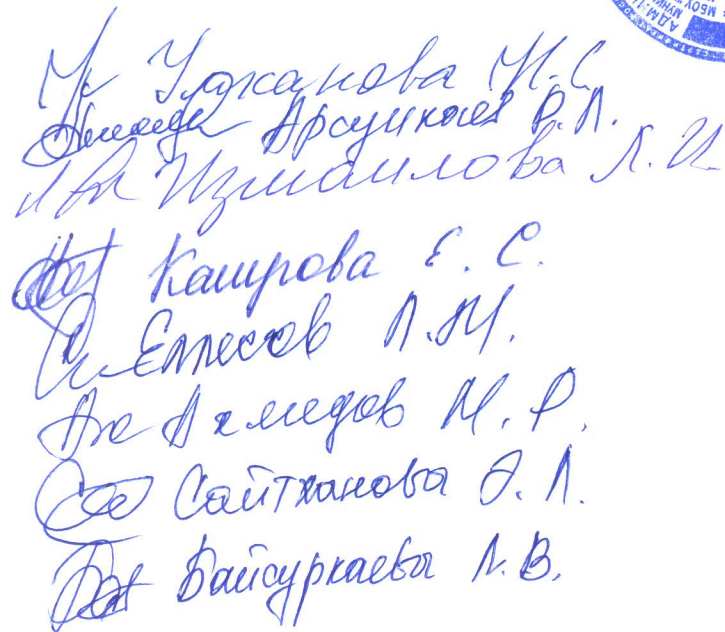 АДМ
МБОУ
МУНИ
Ужанова И. С.
Арсункаев Р. Л.
Измаилова Л. И.
Каирова Е. С.
Еллесов Л. М.
Ахмедов М. Р.
Сайтханова Э. Л.
Байсуркаева Л. В.